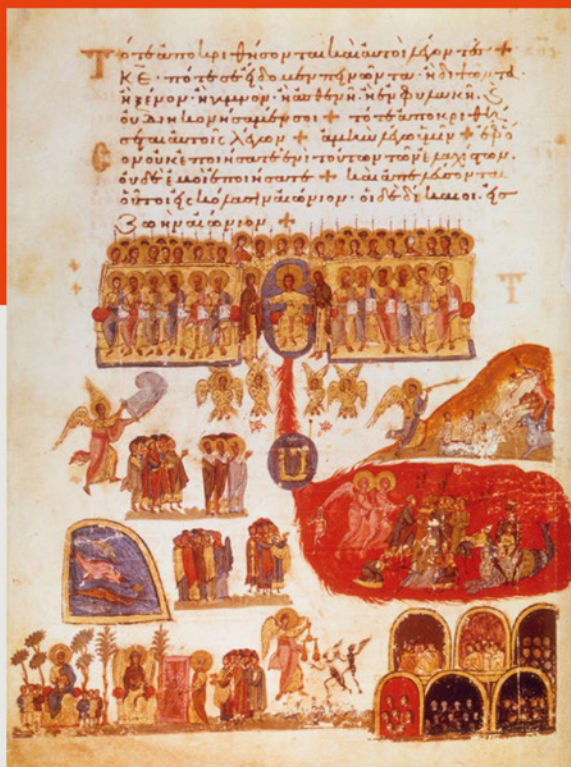 Τότε ἀποκριθήσονται καὶ αὐτοὶ λέγοντες +
ΚΕ · πότε σε εἴδομεν πεινῶντα · ἢ διψῶντα
ἢ ξένον · ἢ γυμνὸν · ἢ ἀσθενῆ · ἢ ἐν φυλακῆ · καὶ
οὐ διηκονήσαμέν σοι + τότε ἀποκριθή
σεται αὐτοῖς λέγων + ἀμὴν λέγω ὑμῖν + ἐφ ὅ
σον οὐκ ἐποιήσατε ἑνὶ τούτων τῶν ἐλαχίστων ·
οὐδὲ ἐμοὶ ἐποιήσατε + καὶ ἀπελεύσονται
οὗτοι εἰς κόλασιν αἰώνιον · οἱ δὲ δίκαιοι · εἰς
ζωὴν αἰώνιον +